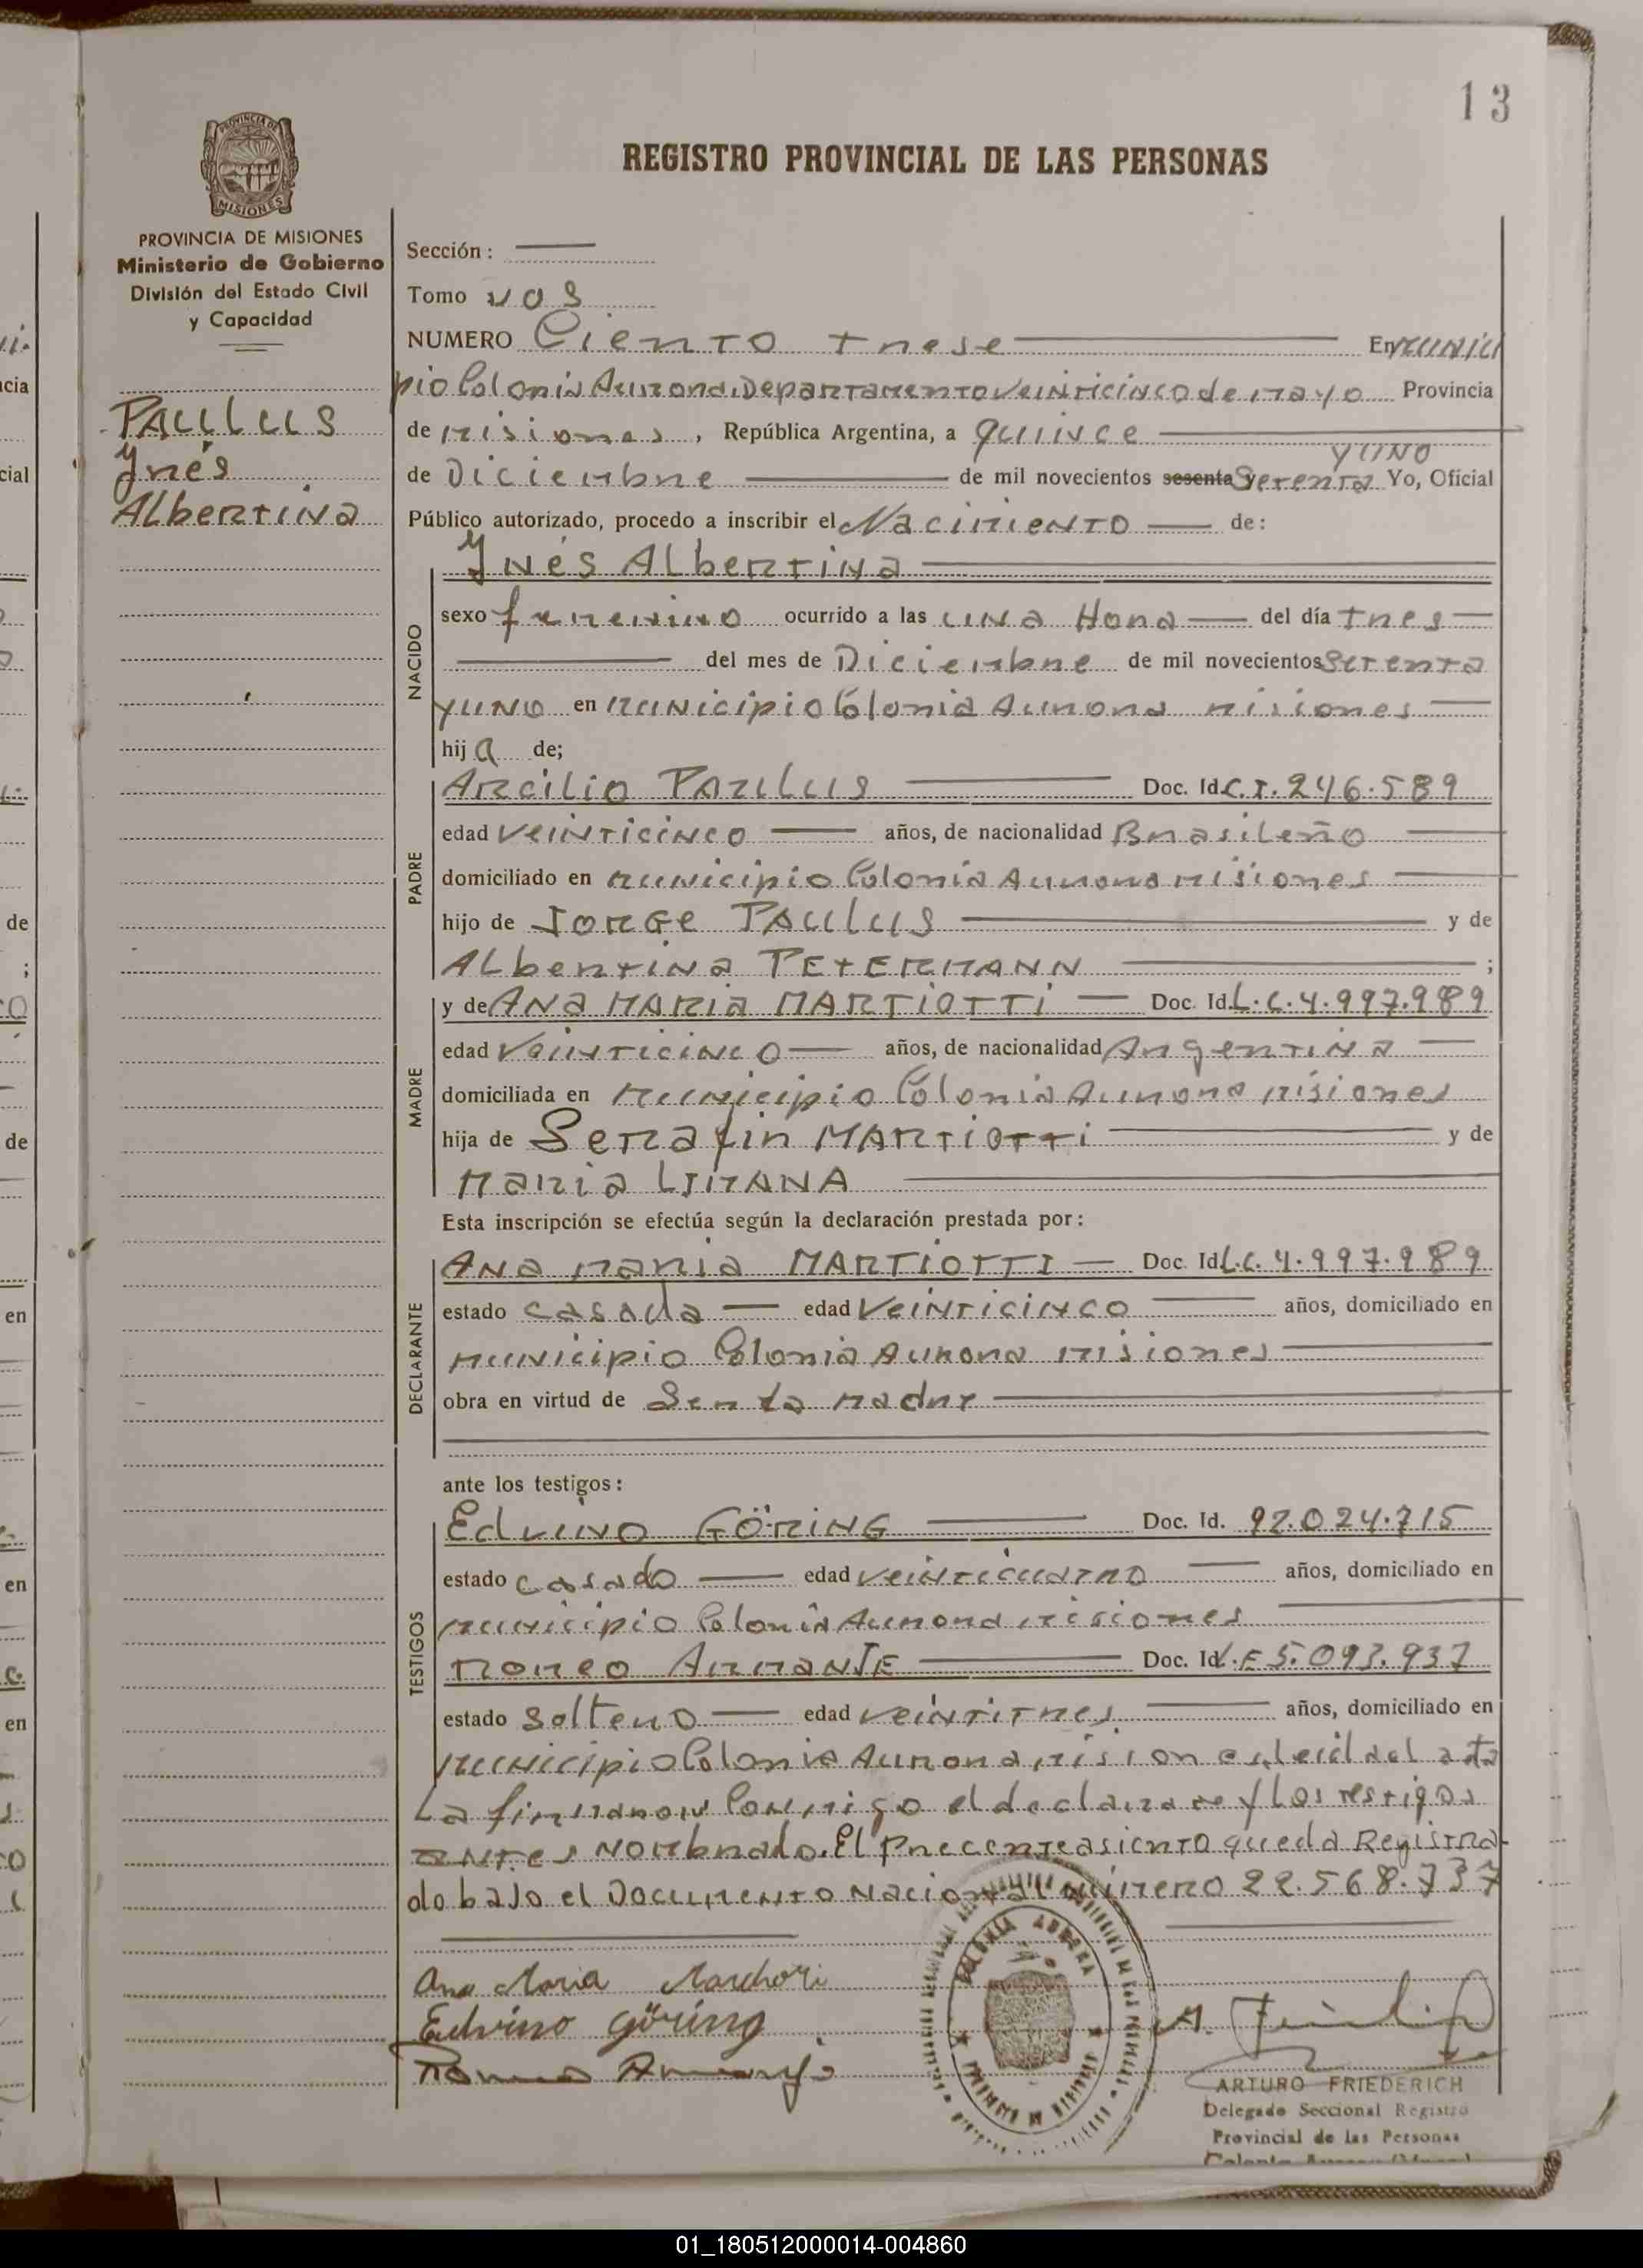 13
REGISTRO PROVINCIAL DE LAS PERSONAS
PROVINCIA DE MISIONES
MISIONES
PROVINCIA DE MISIONES
Ministerio de Gobierno
División del Estado Civil
y Capacidad
PAULUS
Ynés
Albertina
Sección:
Tomo DOS
NUMERO Ciento trese En Munici
pio Colonia Aurora, Departamento Veinticinco de mayo Provincia
de misiones, República Argentina, a quince
y uno
de Diciembre de mil novecientos sesenta y Setenta Yo, Oficial
Público autorizado, procedo a inscribir el Nacimiento de:
Ynés Albertina
NACIDO
sexo femenino ocurrido a las una Hora del día tres
del mes de Diciembre de mil novecientos setenta
y uno en municipio Colonia Aurora misiones
hija de;
PADRE
Arcilio PAULUS Doc. Id. C.I. 246.589
edad veinticinco años, de nacionalidad Brasileño
domiciliado en municipio Colonia Aurora misiones
hijo de JORGe PAULUS y de
Albertina PETERMANN ;
MADRE
y de ANA MARIA MARTIOTTI Doc. Id. L.C. 4.997.989
edad Veinticinco años, de nacionalidad Argentina
domiciliada en municipio Colonia Aurora misiones
hija de Serafin MARTIOTTI y de
Maria LIMANA
Esta inscripción se efectúa según la declaración prestada por:
DECLARANTE
Ana maria MARTIOTTI Doc. Id. L.C. 4.997.989
estado casada edad Veinticinco años, domiciliado en
municipio Colonia Aurora misiones
obra en virtud de Ser la madre
ante los testigos:
TESTIGOS
Edvino GÖRING Doc. Id. 92.024.715
estado casado edad veinticuatro años, domiciliado en
municipio Colonia Aurora misiones
Romeo AmmanJE Doc. Id. L.E 5.093.937
estado soltero edad veintitres años, domiciliado en
municipio Colonia Aurora, mision es, leida el acta
La firmaron Conmigo el declarante y Los testigos
antes Nombrado. El Precente asiento queda Registra
do bajo el Documento Nacional número 22.568.737
Ana Maria
Edvino Göring
Romeo
COLONIA AURORA
ARTURO FRIEDERICH
Delegado Seccional Registro
Provincial de las Personas
01_180512000014-004860